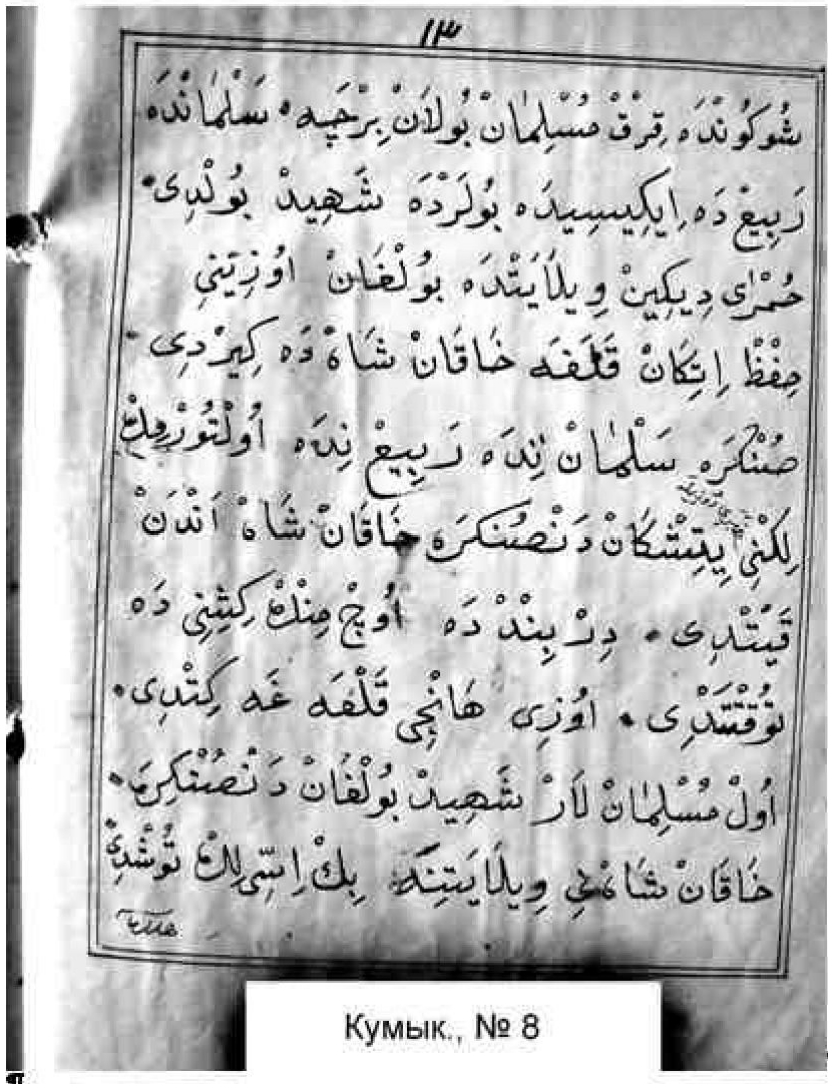 ١٣
شُوكُونْدَه قِرْقْ مُسْلِمَانْ بُولَانْ بِرْجَيه سَلْمَانْدَه
رَبِيعْ دَه اِيكِيسِيدَه بُولَرْدَه شَهِيدْ بُولْدِى
حُمْرَاى دِيكِينْ وِيلَايَتْدَه بُولْغَانْ اوُزِيتِنِى
حِفْظْ اِتِكَانْ قَلَفَه خَاقَانْ شَاهْ دَه كِيرْدِى
صُنْكرَه سَلْمَانْ نِدَه رَبِيعْ نِدَه اُولْتُورْمِكْ
لِكْنِى يِتِشْكَانْ دَنْصُنكرَه خَاقَانْ شَاهْ اَنْدَنْ
قَيْتْدِى دِرْبِنْدْ دَه اُوچْ مِنْكْ كِشِنِى دَه
تُوقْتَتْدِى اوُزِى هَانْجِى قَلْفَه غَه كِتْدِى
اُولْ مُسْلِمَانْ لَارْ شَهِيدْ بُولْغَانْ دَنْصُنْكِرَه
خَاقَانْ شَاهْنِى وِيلَايَتِنَه بِكْ اِسِّى لِكْ تُوشْدِى
Кумык., № 8